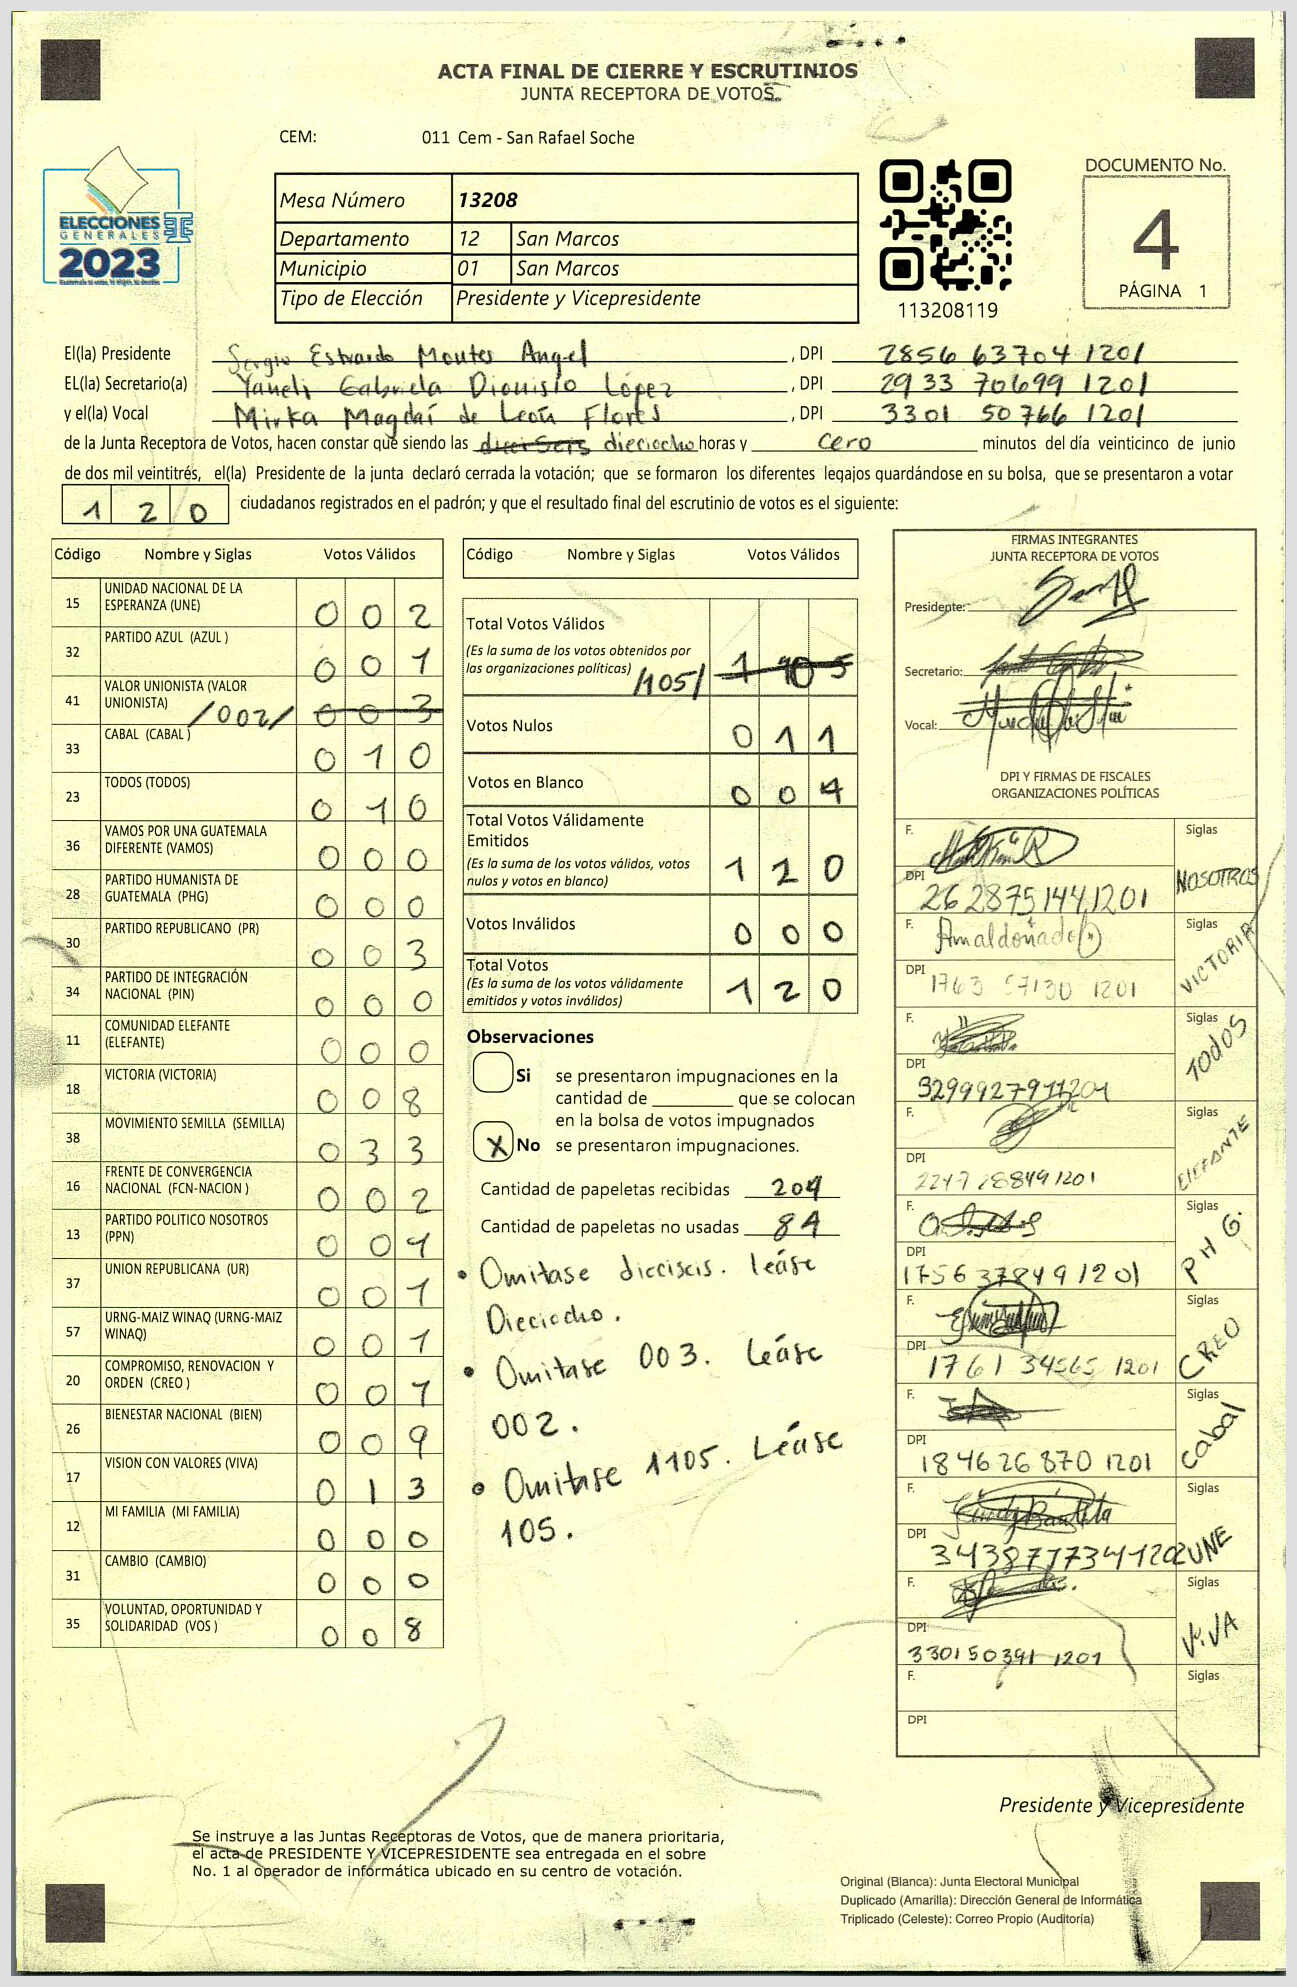 ACTA FINAL DE CIERRE Y ESCRUTINIOS
JUNTA RECEPTORA DE VOTOS
CEM: 011 Cem - San Rafael Soche
ELECCIONES
GENERALES
2023
Mesa Número 13208
Departamento 12 San Marcos
Municipio 01 San Marcos
Tipo de Elección Presidente y Vicepresidente
113208119
DOCUMENTO No.
4
PÁGINA 1
El(la) Presidente Sergio Estuardo Montes Angel, DPI 2856 63704 1201
EL(la) Secretario(a) Yaneli Gabriela Dionisio López, DPI 2933 70699 1201
y el(la) Vocal Mirka Magdaí de León Flores, DPI 3301 50766 1201
de la Junta Receptora de Votos, hacen constar que siendo las dieciseis dieciocho horas y cero minutos del día veinticinco de junio
de dos mil veintitrés, el(la) Presidente de la junta declaró cerrada la votación; que se formaron los diferentes legajos guardándose en su bolsa, que se presentaron a votar
120 ciudadanos registrados en el padrón; y que el resultado final del escrutinio de votos es el siguiente:
Código Nombre y Siglas Votos Válidos
15 UNIDAD NACIONAL DE LA ESPERANZA (UNE) 002
32 PARTIDO AZUL (AZUL ) 001
41 VALOR UNIONISTA (VALOR UNIONISTA) /002/ 003
33 CABAL (CABAL ) 010
23 TODOS (TODOS) 010
36 VAMOS POR UNA GUATEMALA DIFERENTE (VAMOS) 000
28 PARTIDO HUMANISTA DE GUATEMALA (PHG) 000
30 PARTIDO REPUBLICANO (PR) 003
34 PARTIDO DE INTEGRACIÓN NACIONAL (PIN) 000
11 COMUNIDAD ELEFANTE (ELEFANTE) 000
18 VICTORIA (VICTORIA) 008
38 MOVIMIENTO SEMILLA (SEMILLA) 033
16 FRENTE DE CONVERGENCIA NACIONAL (FCN-NACION ) 002
13 PARTIDO POLITICO NOSOTROS (PPN) 001
37 UNION REPUBLICANA (UR) 001
57 URNG-MAIZ WINAQ (URNG-MAIZ WINAQ) 001
20 COMPROMISO, RENOVACION Y ORDEN (CREO ) 001
26 BIENESTAR NACIONAL (BIEN) 009
17 VISION CON VALORES (VIVA) 013
12 MI FAMILIA (MI FAMILIA) 000
31 CAMBIO (CAMBIO) 000
35 VOLUNTAD, OPORTUNIDAD Y SOLIDARIDAD (VOS ) 008
Código Nombre y Siglas Votos Válidos
Total Votos Válidos
(Es la suma de los votos obtenidos por
las organizaciones políticas) /105/ 1 10 5
Votos Nulos 011
Votos en Blanco 004
Total Votos Válidamente
Emitidos
(Es la suma de los votos válidos, votos
nulos y votos en blanco) 120
Votos Inválidos 000
Total Votos
(Es la suma de los votos válidamente
emitidos y votos inválidos) 120
Observaciones
Si se presentaron impugnaciones en la
cantidad de ________ que se colocan
en la bolsa de votos impugnados
X No se presentaron impugnaciones.
Cantidad de papeletas recibidas 204
Cantidad de papeletas no usadas 84
• Omitase dieciseis. léase
Dieciocho.
• Omitase 003. Léase
002.
• Omitase 1105. Léase
105.
FIRMAS INTEGRANTES
JUNTA RECEPTORA DE VOTOS
Presidente:
Secretario:
Vocal:
DPI Y FIRMAS DE FISCALES
ORGANIZACIONES POLÍTICAS
F. Siglas NOSOTROS
DPI 26 2875144 1201
F. Amaldonado Siglas VICTORIA
DPI 1763 57130 1201
F. Siglas TODOS
DPI 3299927911201
F. Siglas ELEFANTE
DPI 2247 28849 1201
F. Siglas PHG.
DPI 1756 37849 1201
F. Siglas CREO
DPI 1761 34565 1201
F. Siglas Cabal
DPI 184626870 1201
F. Siglas UNE
DPI 3438777341202
F. Siglas ViVA
DPI 330150391 1201
F. Siglas
DPI
Presidente y Vicepresidente
Se instruye a las Juntas Receptoras de Votos, que de manera prioritaria,
el acta de PRESIDENTE Y VICEPRESIDENTE sea entregada en el sobre
No. 1 al operador de informática ubicado en su centro de votación.
Original (Blanca): Junta Electoral Municipal
Duplicado (Amarilla): Dirección General de Informática
Triplicado (Celeste): Correo Propio (Auditoría)